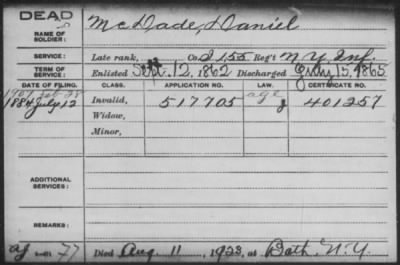 DEAD
NAME OF SOLDIER: McDade, Daniel
SERVICE: Late rank, Co. I 155 Reg't N.Y. Inf.
TERM OF SERVICE: Enlisted Sept. 12, 1862 Discharged July 15, 1865
DATE OF FILING. CLASS. APPLICATION NO. LAW. CERTIFICATE NO.
1907 Feb 28 age
1884 July 12 Invalid, 517705 401257
Widow,
Minor,
ADDITIONAL SERVICES:
REMARKS:
77 Died Aug. 11, 1923, at Bath, N.Y.